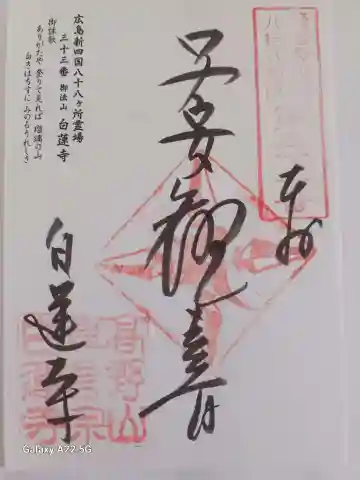 奉拝
子安観音
白蓮寺
広島新四国八十八ヶ所霊場
三十三番 御法山 白蓮寺
御詠歌
ありがたや 登りて見れば 瑠璃の山
白きはちすに みのるうれしさ
高野山
真言宗
白蓮寺
Galaxy A22 5G